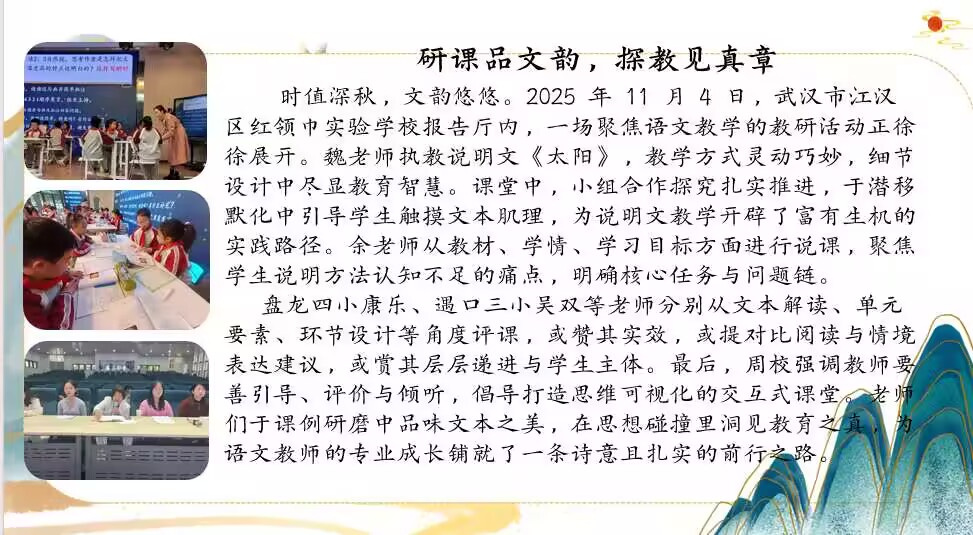 研课品文韵，探教见真章
时值深秋，文韵悠悠。2025 年 11 月 4 日，武汉市江汉
区红领巾实验学校报告厅内，一场聚焦语文教学的教研活动正徐
徐展开。魏老师执教说明文《太阳》，教学方式灵动巧妙，细节
设计中尽显教育智慧。课堂中，小组合作探究扎实推进，于潜移
默化中引导学生触摸文本肌理，为说明文教学开辟了富有生机的
实践路径。余老师从教材、学情、学习目标方面进行说课，聚焦
学生说明方法认知不足的痛点，明确核心任务与问题链。
盘龙四小康乐、遇口三小吴双等老师分别从文本解读、单元
要素、环节设计等角度评课，或赞其实效，或提对比阅读与情境
表达建议，或赏其层层递进与学生主体。最后，周校强调教师要
善引导、评价与倾听，倡导打造思维可视化的交互式课堂。老师
们于课例研磨中品味文本之美，在思想碰撞里洞见教育之真，为
语文教师的专业成长铺就了一条诗意且扎实的前行之路。